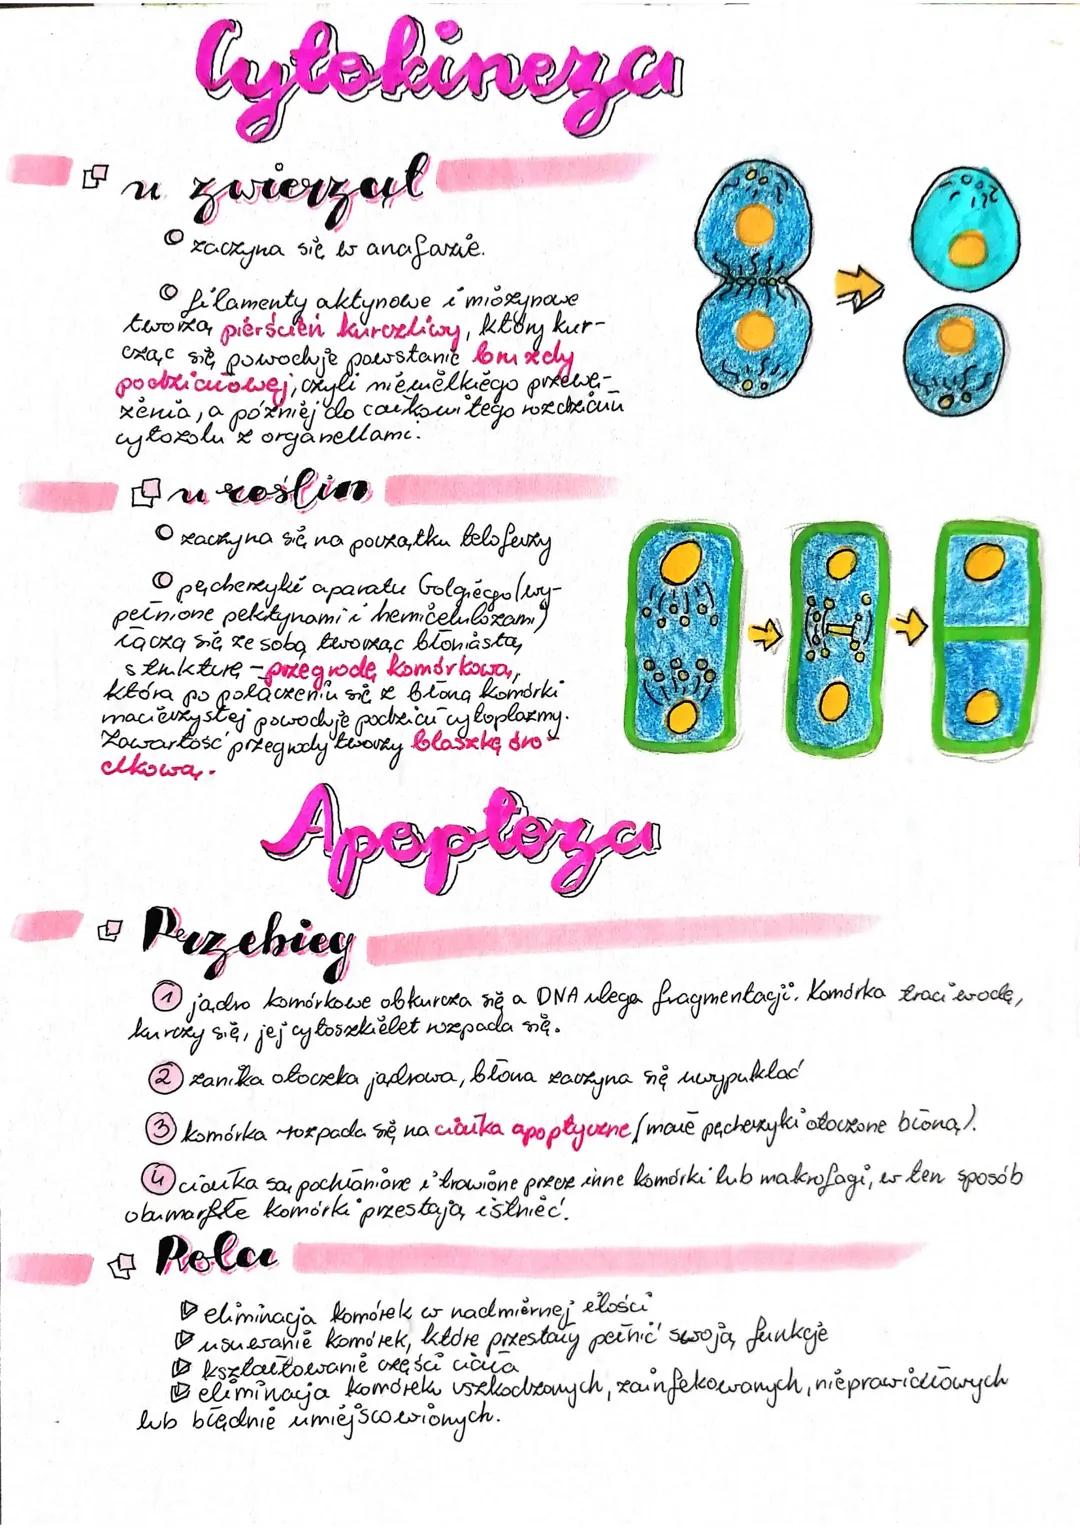 Cytokineza
u zwierząt
zaczyna się w anafazie.
filamenty aktynowe i miozynowe
tworzą pierścień kurczliwy, który kur-
cząc się powoduje powstanie bruzdy
podziałowej, czyli niewielkiego przewę-
żenia, a później do całkowitego rozdziału
cytozolu z organellami.
u roślin
zaczyna się na początku telofazy
pęcherzyki aparatu Golgiego (wy-
pełnione pektynami i hemicelulozami)
łączą się ze sobą tworząc błoniastą
strukturę - przegrodę komórkową,
która po połączeniu się z błoną komórki
macierzystej powoduje podział cytoplazmy.
Zawartość przegrody tworzy blaszkę śro-
dkową.
Apoptoza
Przebieg
1 jądro komórkowe obkurcza się a DNA ulega fragmentacji. Komórka traci wodę,
kurczy się, jej cytoszkielet rozpada się.
2 zanika otoczka jądrowa, błona zaczyna się uwypuklać
3 komórka rozpada się na ciałka apoptyczne (małe pęcherzyki otoczone błoną).
4 ciałka są pochłaniane i trawione przez inne komórki lub makrofagi, w ten sposób
obumarłe komórki przestają istnieć.
Rola
eliminacja komórek w nadmiernej ilości
usuwanie komórek, które przestały pełnić swoją funkcję
kształtowanie części ciała
eliminacja komórek uszkodzonych, zainfekowanych, nieprawidłowych
lub błędnie umiejscowionych.